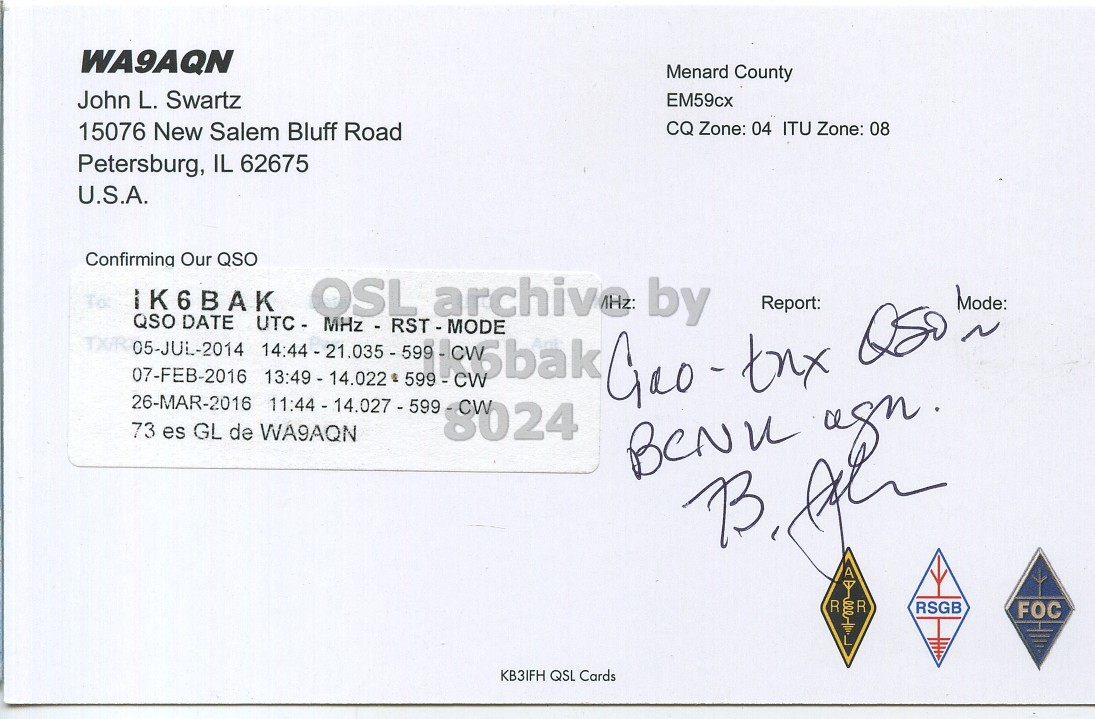 WA9AQN
John L. Swartz
15076 New Salem Bluff Road
Petersburg, IL 62675
U.S.A.
Menard County
EM59cx
CQ Zone: 04 ITU Zone: 08
Confirming Our QSO
To:
MHz: Report: Mode:
IK6BAK
QSO DATE UTC - MHz - RST - MODE
05-JUL-2014 14:44 - 21.035 - 599 - CW
07-FEB-2016 13:49 - 14.022 - 599 - CW
26-MAR-2016 11:44 - 14.027 - 599 - CW
73 es GL de WA9AQN
QSL archive by
ik6bak
8024
tnx QSO
BCNU agn.
73, John
ARRL
RSGB
FOC
KB3IFH QSL Cards